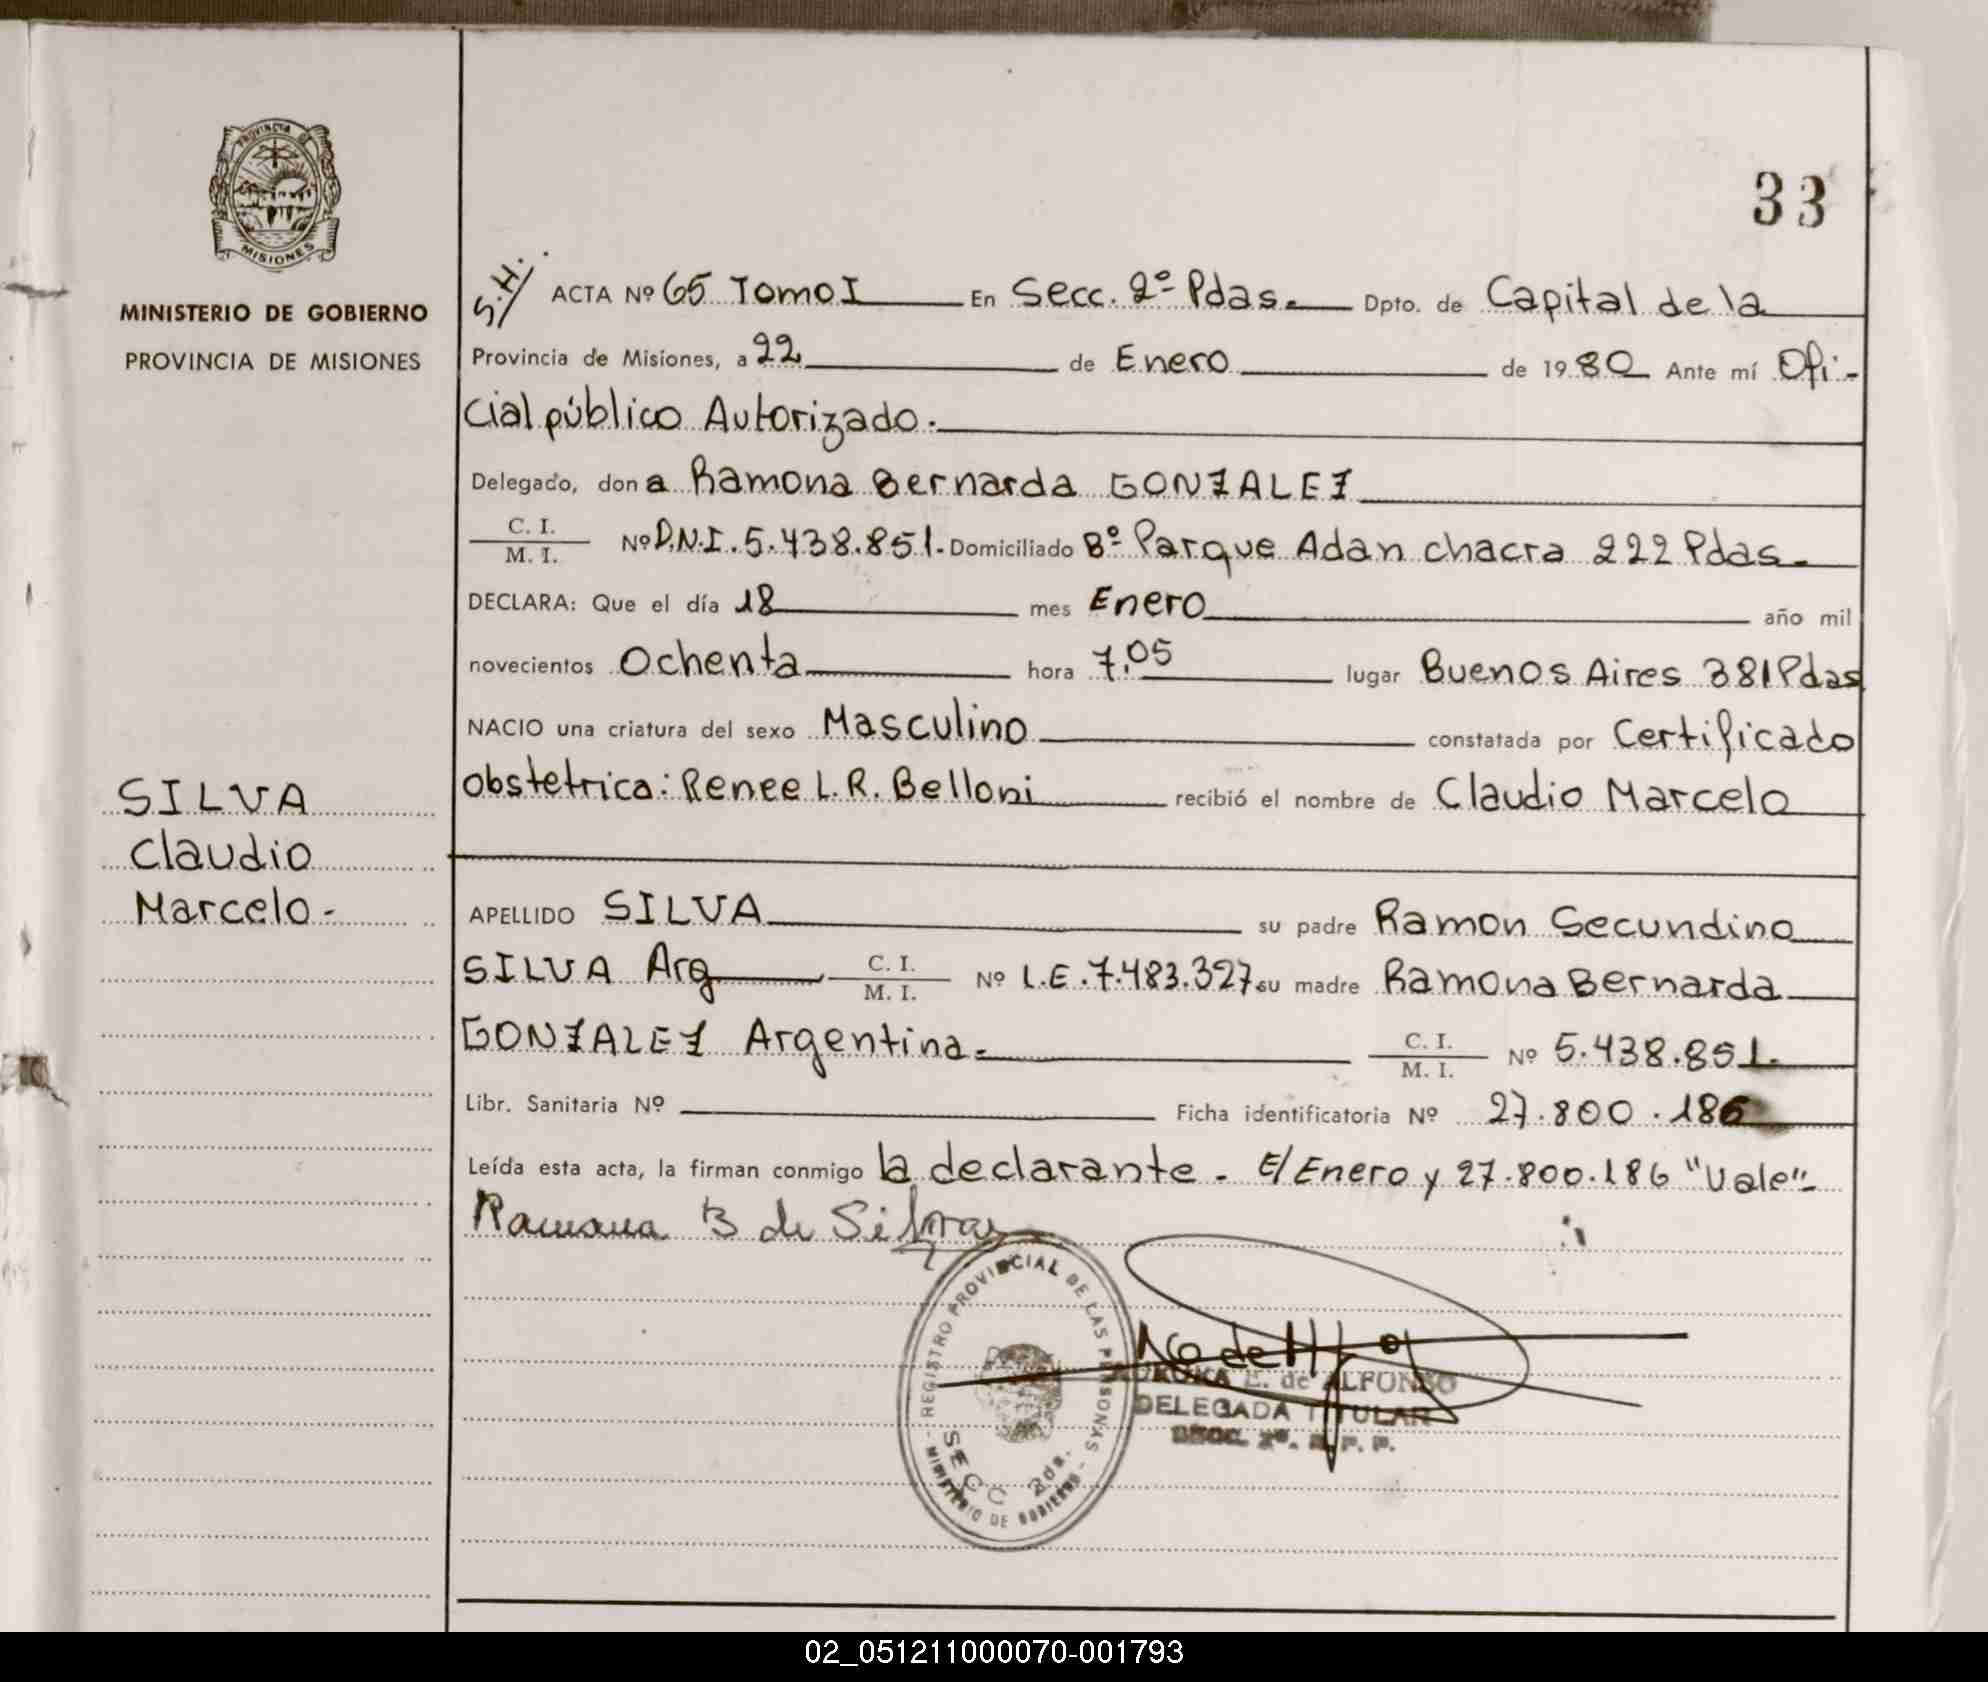 PROVINCIA DE
MISIONES
MINISTERIO DE GOBIERNO
PROVINCIA DE MISIONES
33
S.H.
ACTA Nº 65 Tomo I En Secc. 2º Pdas. Dpto. de Capital de la
Provincia de Misiones, a 22 de Enero de 1980 Ante mí Ofi-
cial público Autorizado.
Delegado, don a Ramona Bernarda GONZALEZ
C. I.
M. I. Nº D.N.I. 5.438.851. Domiciliado Bº Parque Adan chacra 222 Pdas.
DECLARA: Que el día 18 mes Enero año mil
novecientos Ochenta hora 7,05 lugar Buenos Aires 381 Pdas
NACIO una criatura del sexo Masculino constatada por Certificado
obstetrica: Renee L. R. Belloni recibió el nombre de Claudio Marcelo
SILVA
Claudio
Marcelo -
APELLIDO SILVA su padre Ramon Secundino
SILVA Arg C. I.
M. I. Nº L.E. 7.483.327 su madre Ramona Bernarda
GONZALEZ Argentina. C. I.
M. I. Nº 5.438.851.
Libr. Sanitaria Nº Ficha identificatoria Nº 27.800.186
Leída esta acta, la firman conmigo la declarante. E/Enero y 27.800.186 "Vale"
Ramona B de Silva
REGISTRO PROVINCIAL DE LAS PERSONAS
MINISTERIO DE GOBIERNO
SECC 2da.
E. de ALFONSO
DELEGADA TITULAR
SECC. 2º. R. P. P.
02_051211000070-001793